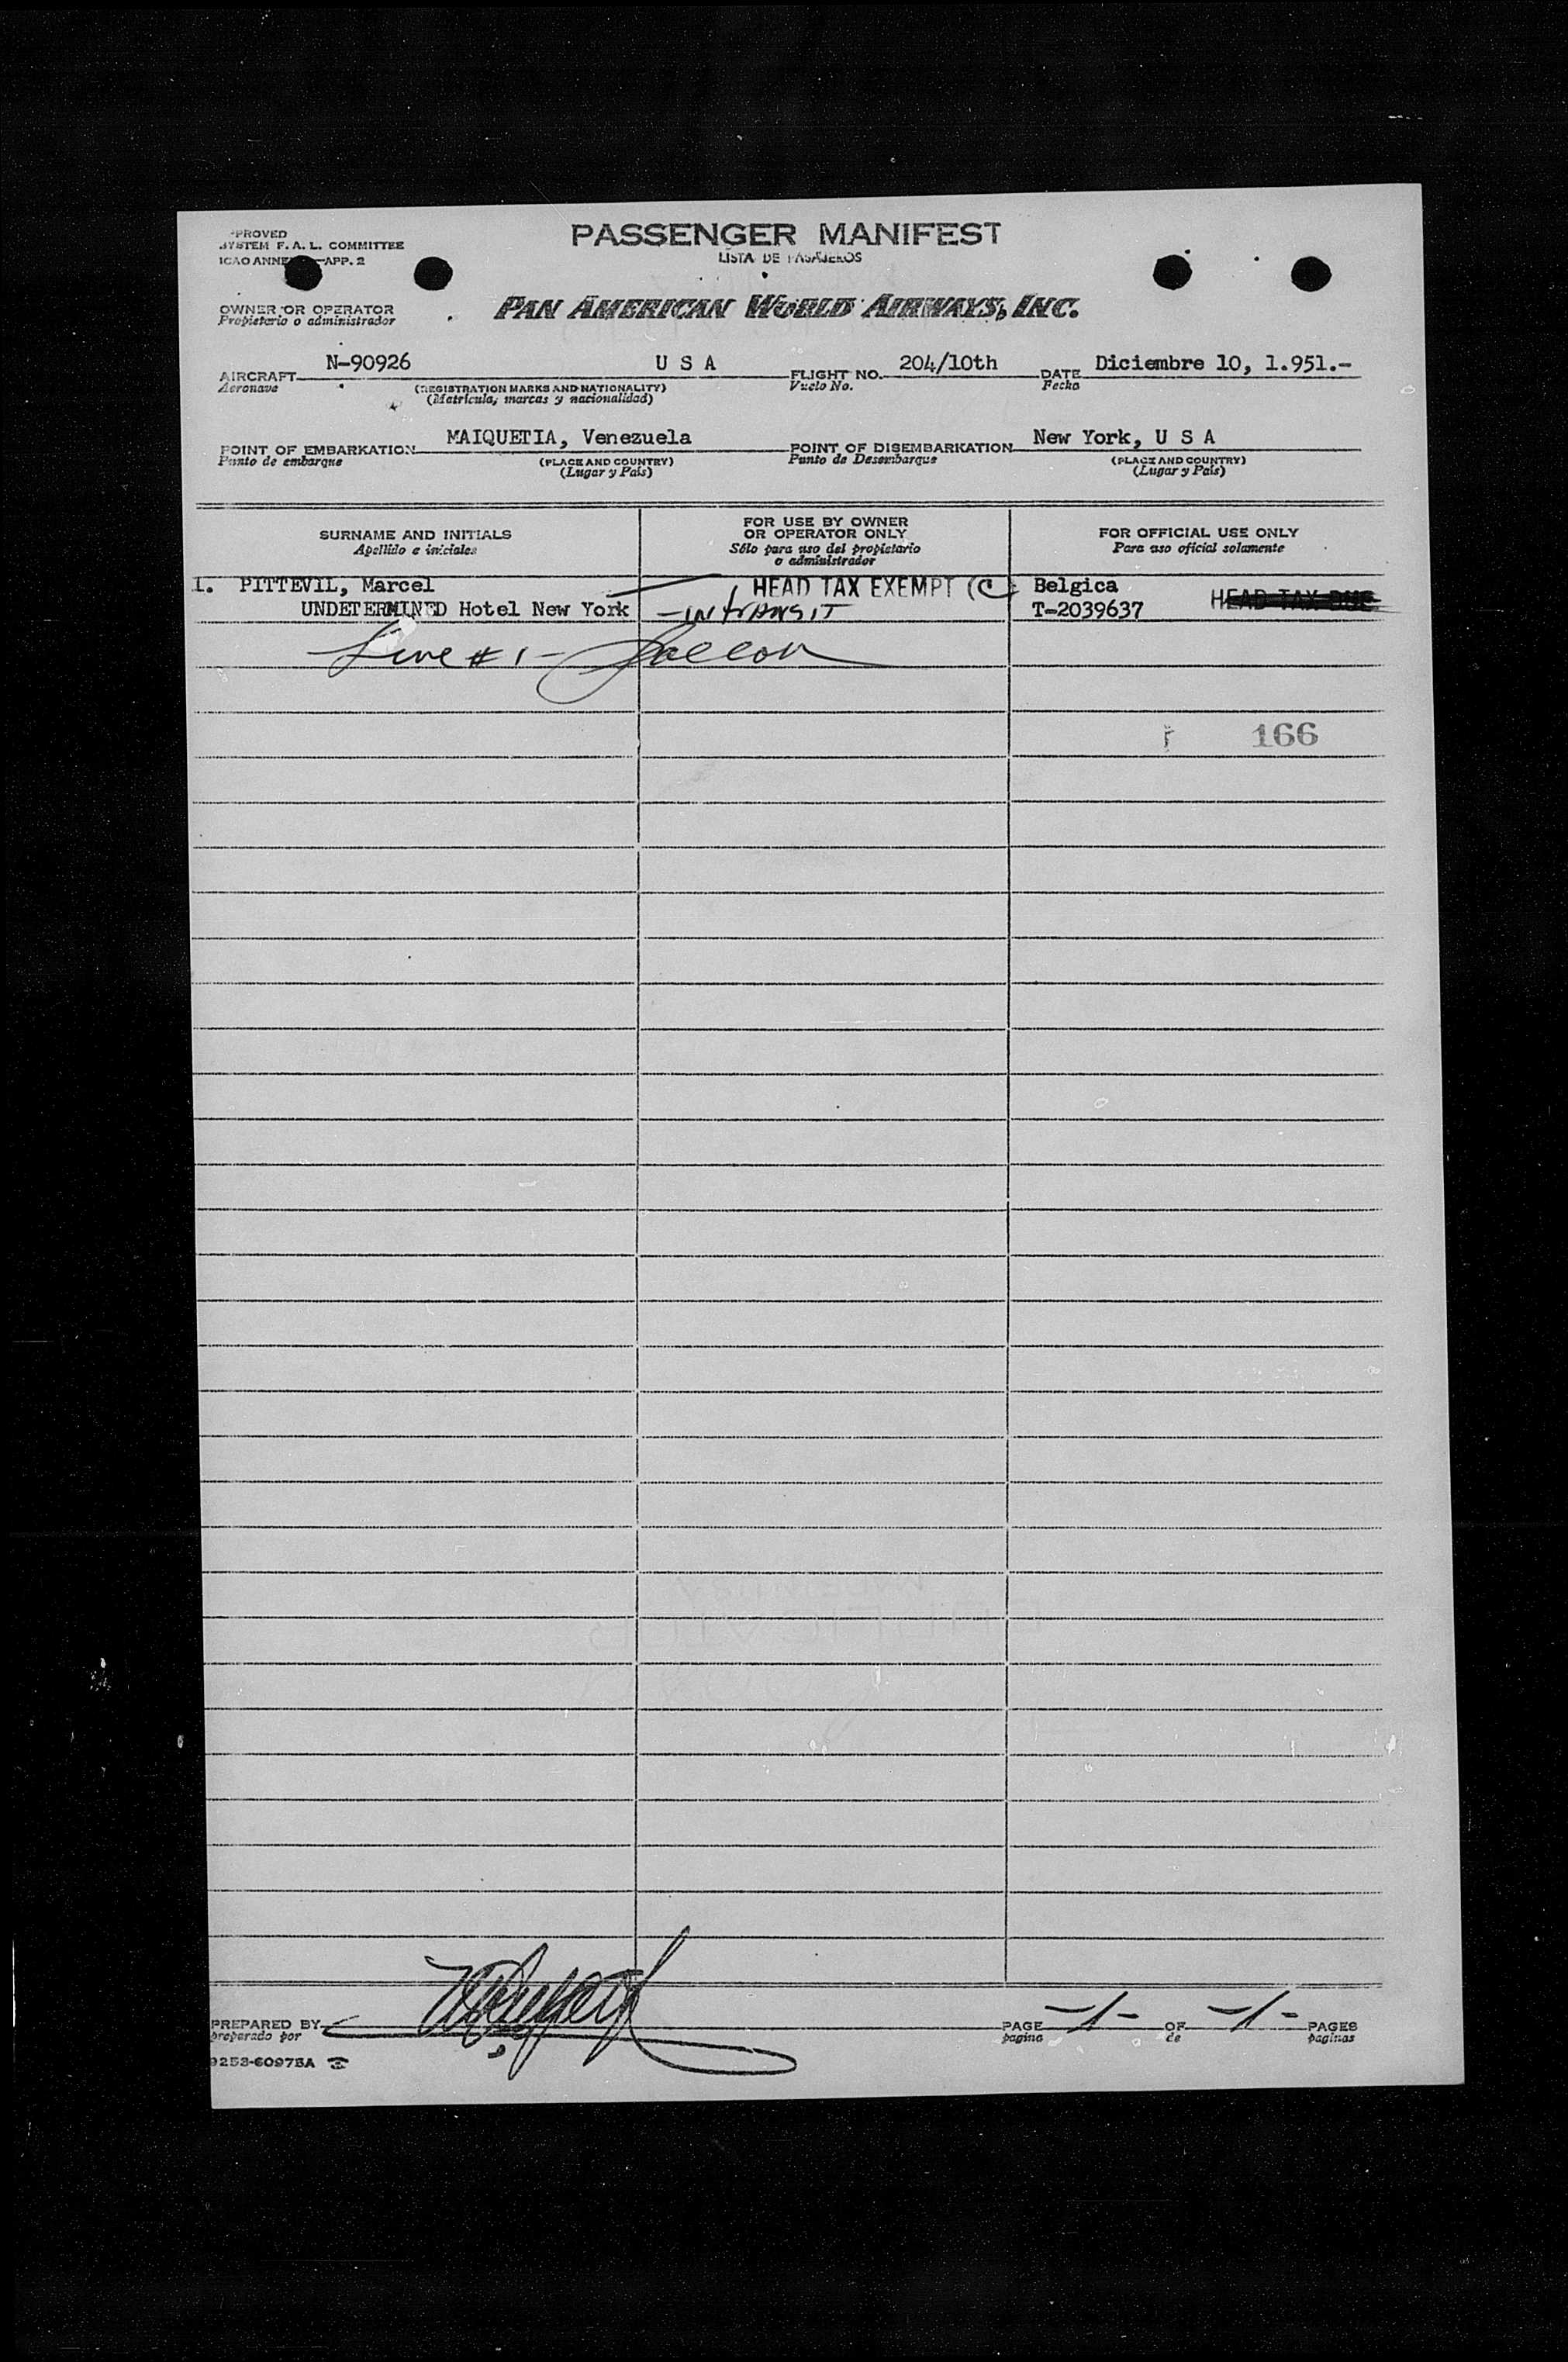 PROVED
SYSTEM F. A. L. COMMITTEE
ICAO ANNE APP. 2
PASSENGER MANIFEST
LISTA DE PASAJEROS
OWNER OR OPERATOR
Propietario o administrador
PAN AMERICAN WORLD AIRWAYS, INC.
AIRCRAFT N-90926 U S A FLIGHT NO. 204/10th DATE Diciembre 10, 1.951.-
Aeronave (REGISTRATION MARKS AND NATIONALITY) Vuelo No. Fecha
(Matrícula, marcas y nacionalidad)
POINT OF EMBARKATION MAIQUETIA, Venezuela POINT OF DISEMBARKATION New York, U S A
Punto de embarque (PLACE AND COUNTRY) Punto de Desembarque (PLACE AND COUNTRY)
(Lugar y País) (Lugar y País)
SURNAME AND INITIALS
Apellido e iniciales
FOR USE BY OWNER
OR OPERATOR ONLY
Sólo para uso del propietario
o administrador
FOR OFFICIAL USE ONLY
Para uso oficial solamente
1. PITTEVIL, Marcel HEAD TAX EXEMPT (C Belgica
UNDETERMINED Hotel New York -IN TRANSIT T-2039637 HEAD TAX DUE
Line # 1-
166
PREPARED BY
preparado por
PAGE -1- OF -1- PAGES
pagina de paginas
9253-60975A